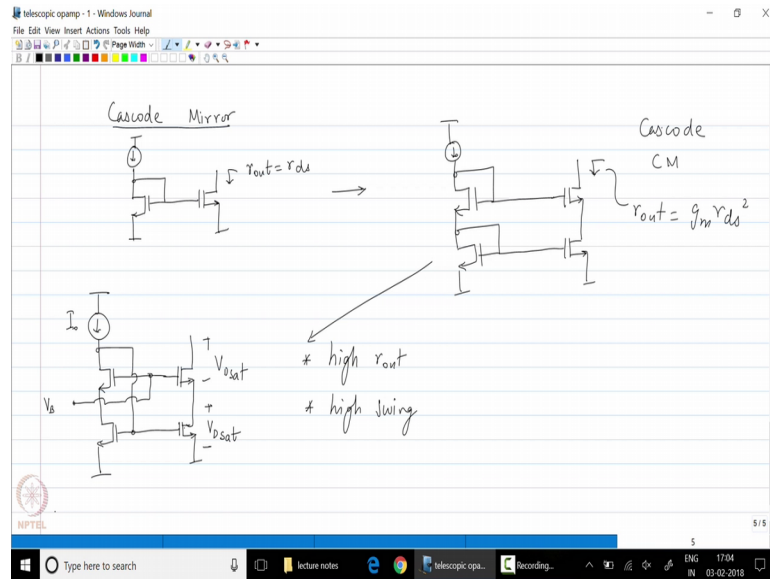 telescopic opamp - 1 - Windows Journal
File Edit View Insert Actions Tools Help
Page Width
B I
Cascode Mirror
rout = rds
Cascode
CM
rout = gm rds²
I₀
VB
+
VDsat
-
+
VDsat
-
* high rout
* high swing
NPTEL
5/5
5
Type here to search
lecture notes
telescopic opa...
Recording...
ENG
IN
17:04
03-02-2018